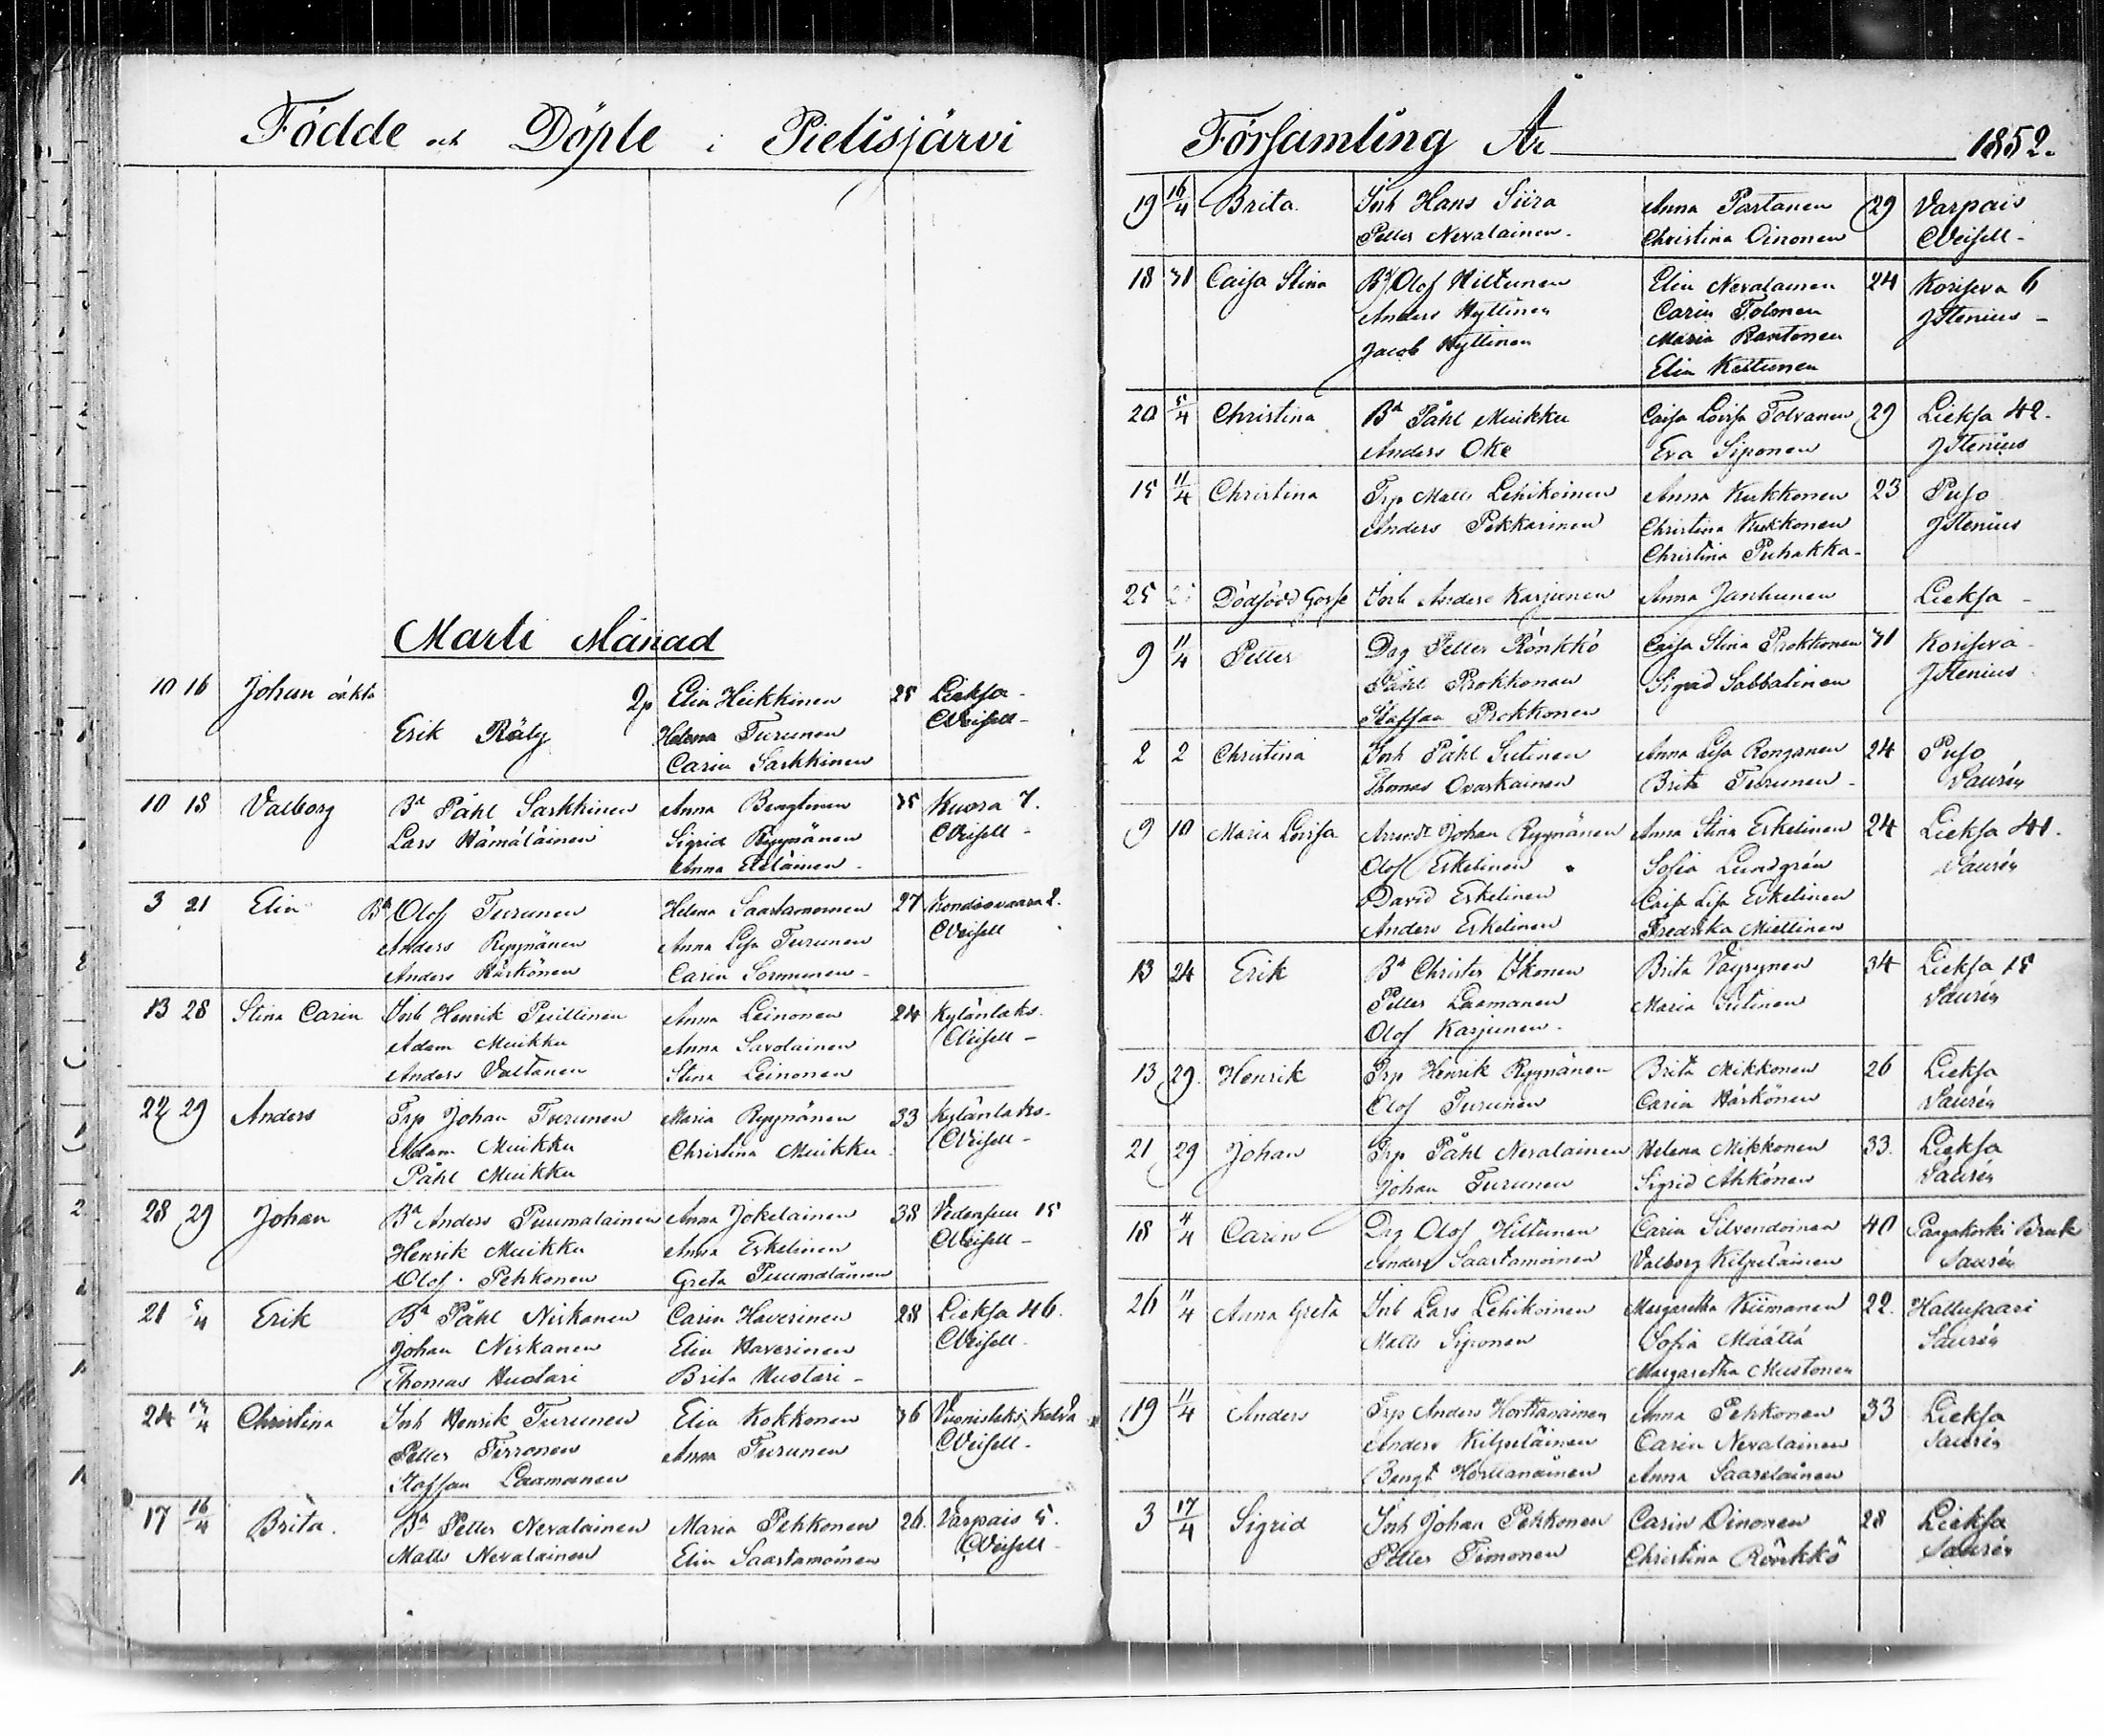 Födde och Döpte i Pielisjärvi
Marti Månad
10 16 Johan oäkta 2p Elin Heikkinen 25 Lieksa -
Erik Räty Helena Turunen CWeisell -
Carin Sarkkinen
10 18 Valborg Bd Påhl Sarkkinen Anna Bengtinen 35 Kuora 7.
Lars Hämäläinen Sigrid Ryynänen CWeisell -
Anna Eteläinen -
3 21 Elin Bd Olof Turunen Helena Saastamoinen 27 2.
Anders Ryynänen Anna Lisa Turunen CWeisell
Anders Härkönen Carin Sormunen -
13 28 Stina Carin Inh Henrik Puittinen Anna Leinonen 24 Kylänlaks.
Adam Muikku Anna Savolainen CWeisell -
Anders Vattanen Stina Leinonen
22 29 Anders Trp Johan Turunen Maria Ryynänen 33 Kylänlaks-
Adam Muikku Christina Muikku CWeisell -
Påhl Muikku
28 29 Johan Bd Anders Puumalainen Anna Jokelainen 38 15
Henrik Muikku Anna Eskelinen CWeisell -
Olof Pehkonen Greta Puumalainen
21 5/4 Erik Bd Påhl Niskanen Carin Haverinen 28 Lieksa 46.
Johan Niskanen Elin Haverinen CWeisell -
Thomas Huotari Brita Huotari -
24 4 Christina Inh Henrik Turunen Elin Kokkonen 36 Vuonislaks,
Petter Tirronen Anna Turunen CWeisell -
Staffan Laamanen
17 16/4 Brita. Bd Petter Nevalainen Maria Pehkonen 26. Varpais 5.
Matts Nevalainen Elin Saastamoinen CWeisell -
Församling År 1852.
19 16/4 Brita. Inh Hans Siira Anna Partanen 29 Varpais
Petter Nevalainen - Christina Oinonen CWeisell -
18 31 Caisa Stina Bd Olof Hiltunen Elin Nevalainen 24 Koriseva 6
Anders Hyttinen Carin Tolonen JStenius -
Jacob Hyttinen Maria Rautonen
Elin Kettunen
20 5/4 Christina Bd Påhl Muikku Caisa Lovisa Tolvanen 29 Lieksa 42.
Anders Oke Eva Siponen JStenius
15 11/4 Christina Trp Matts Lehikoinen Anna Kukkonen 23 Puso
Anders Pekkarinen Christina Kukkonen JStenius
Christina Puhakka -
25 Dödfödd Gosse Inh Anders Karjunen Anna Janhunen Lieksa -
9 11/4 Petter Dag Petter Rönkkö Caisa Stina Prokkonen 31 Koriseva -
Påhl Prokkonen Sigrid Sabbatinen JStenius
Staffan Prokkonen
2 2 Christina Inh Påhl Sutinen Anna Lisa Ronganen 24 Puso
Thomas Ovaskainen Brita Turunen - Saurén
9 10 Maria Lovisa Arrendt Johan Ryynänen Anna Stina Eskelinen 24 Lieksa 41.
Olof Eskelinen Sofia Lundgrén Saurén
David Eskelinen Caisa Lisa Eskelinen
Anders Eskelinen Fredrika Miettinen
13 24 Erik Bd Christer Itkonen Brita Väyrynen 34 Lieksa 15
Petter Laamanen Maria Sutinen Saurén
Olof Karjunen -
13 29. Henrik Trp Henrik Ryynänen Brita Mikkonen 26 Lieksa
Olof Turunen Carin Härkönen Saurén
21 29 Johan Trp Påhl Nevalainen Helena Mikkonen 33. Lieksa
Johan Turunen Sigrid Ahkönen Saurén
18 4/4 Carin Dag Olof Hiltunen Carin Silvendoinen 40 Pangakoski Bruk
Anders Saastamoinen Valborg Kilpeläinen Saurén
26 11/4 Anna Greta Inh Lars Lehikoinen Margaretha Kiimanen 22. Hattusaari
Matts Siponen Sofia Määttä Saurén
Margaretha Mustonen
19 11/4 Anders Trp Anders Horttanainen Anna Pehkonen 33 Lieksa
Anders Kilpeläinen Carin Nevalainen Saurén
Bengt Horttanainen Anna Saarelainen
3 17/4 Sigrid Inh Johan Pehkonen Carin Oinonen 28 Lieksa
Petter Timonen Christina Rönkkö Saurén